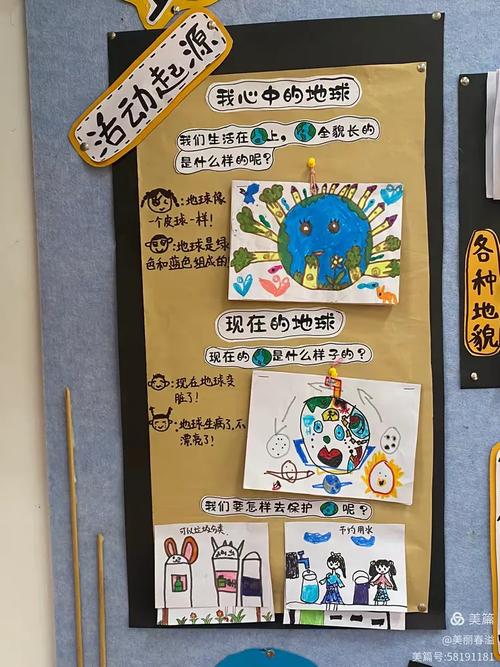 活动起源
我心中的地球
我们生活在上，全貌长的
是什么样的呢？
：地球像
一个皮球一样！
：地球是绿
色和蓝色组成的！
现在的地球
现在的是什么样子的？
：现在地球变
脏了！
：地球生病了，不
漂亮了！
我们要怎样去保护呢？
可以垃圾分类
节约用水
各种地貌
美篇
@美丽春溢
美篇号:58191181